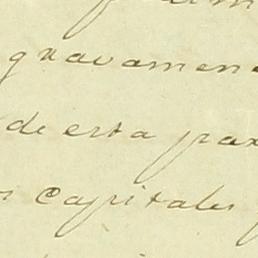 gravamen
de esta par
s capitales